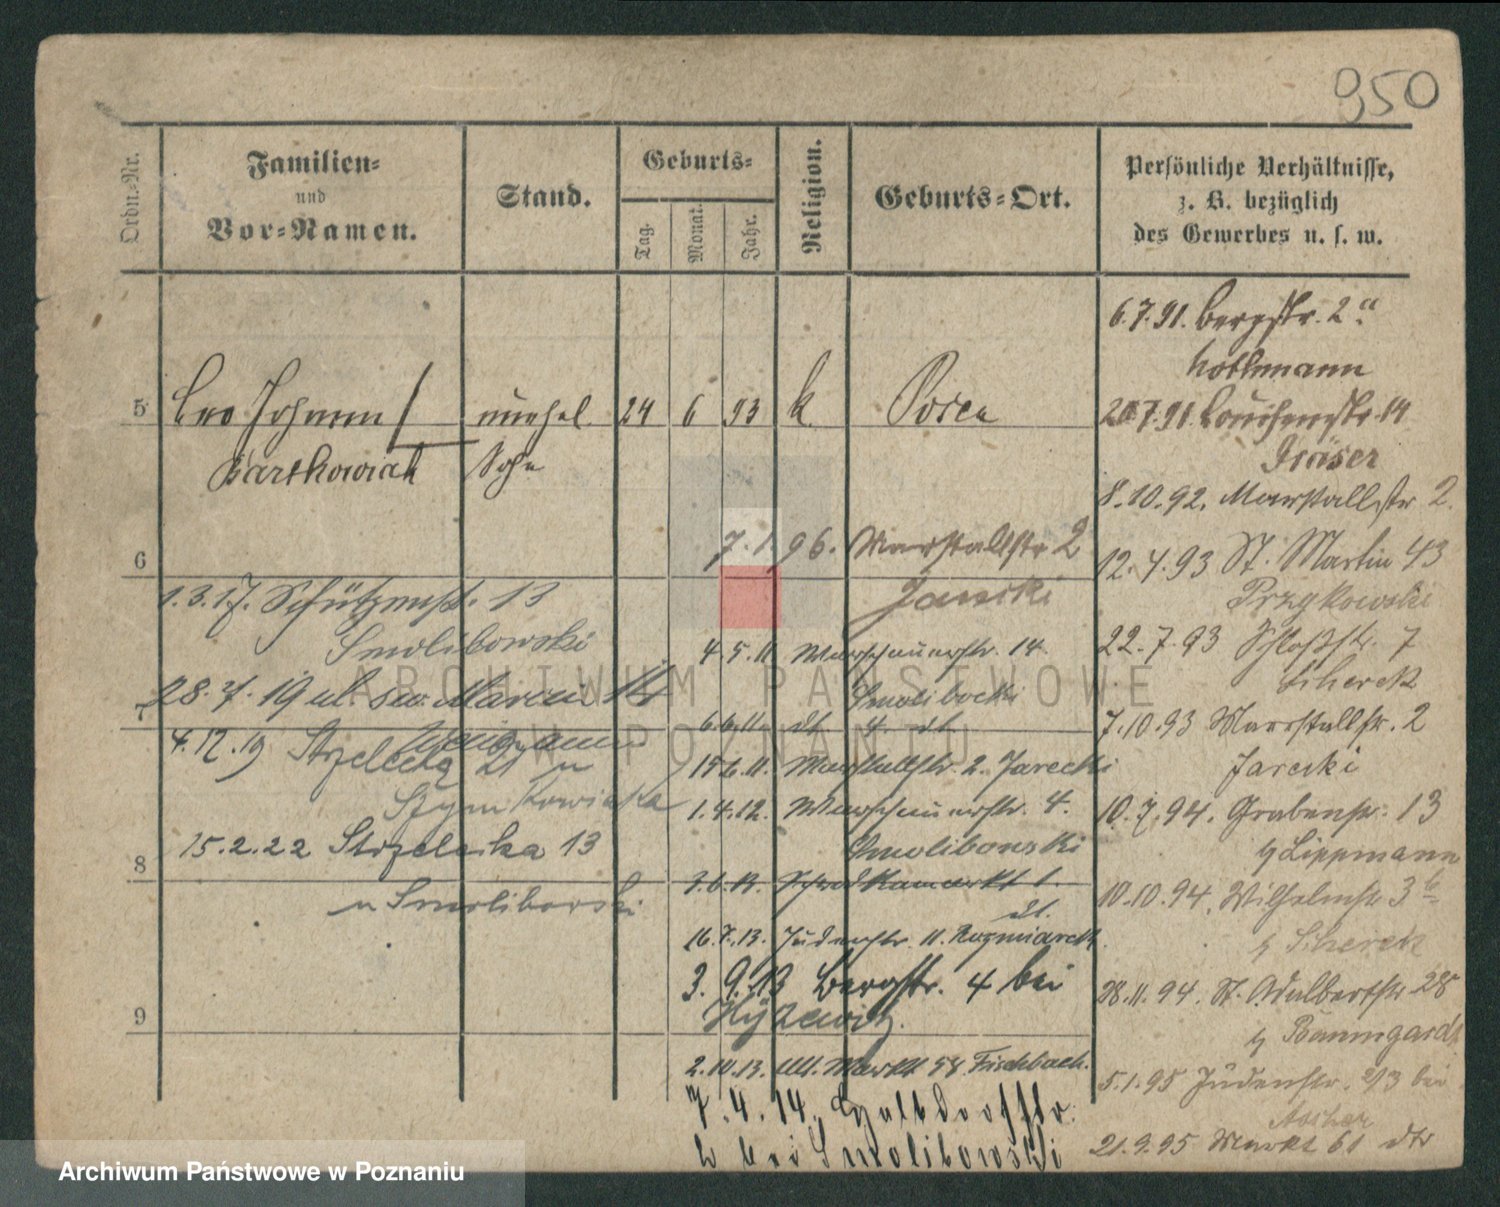 950
Ordn.-Nr.
Familien-
und
Vor-Namen.
Stand.
Geburts-
Tag.
Monat.
Jahr.
Religion.
Geburts-Ort.
Persönliche Verhältnisse,
z. B. bezüglich
des Gewerbes u. s. w.
6.7.91. Bergstr. 2a
Hothmann
20.7.91. Louisenstr. 14
Gräser
8.10.92. Marstallstr 2.
12.4.93 St. Martin 43
Przykowski
22.7.93 Schloßstr. 7
Scherek
7.10.93 Marstallstr. 2
Jarecki
10.7.94. Grabenstr. 13
b Lippmann
10.10.94. Wilhelmstr 3b
b Scherek
28.11.94. St. Adalbertstr 28
b Baumgardt
5.1.95 Judenstr. 2/3 bei
Ascher
21.9.95 Markt 61
5 Leo Johann unehel. 24 6 93 k. Posen
Bartkowiak Sohn
6
7.1.96. Marstallstr 2
Jarecki
4.5.11 Warschauerstr. 14
Smolibocki
6.6.11. dt. 4. dt.
15.6.11. Marstallstr. 2. Jarecki
1.4.12. Warschauerstr. 4.
Smolibowski
3.6.13. Schrodkamarkt 1.
dt.
16.7.13. Judenstr. 11. Kozmiarek
3.9.13 Bergstr. 4 bei
2.10.13. Alt. Markt 58 Fischbach.
7.4.14.
bei Smolibowski
1.3.17. Schützenstr. 13
Smolibowski
28.7.19 ul. św. Marcin
7
4.12.19 Strzelecka 21 u
Szymkowiaka
15.2.22 Strzelecka 13
8
u Smoliborski
9
ARCHIWUM PAŃSTWOWE
W POZNANIU
Archiwum Państwowe w Poznaniu